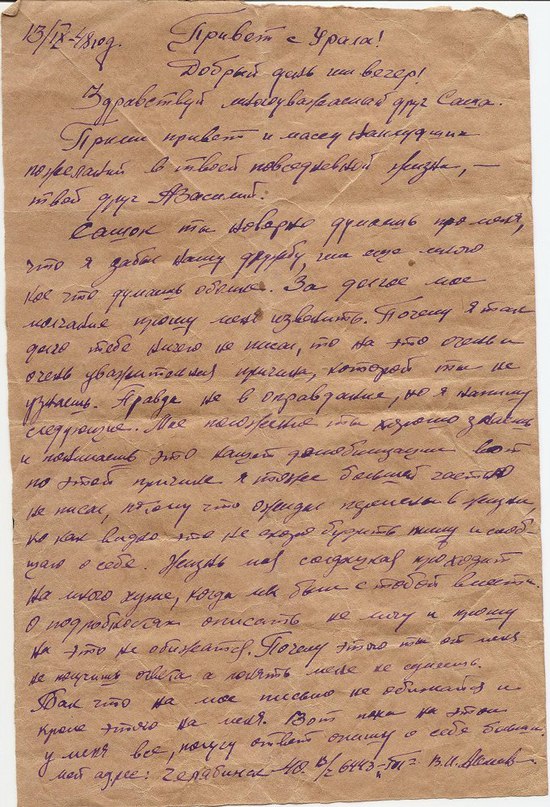 13/IX-48 год. Привет с Урала!
Добрый день или вечер!
Здравствуй многоуважаемый друг Саша.
Прими привет и массу наилучших
пожеланий в твоей повседневной жизни, –
твой друг Василий.
Сашок ты наверно думаешь про меня,
что я забыл нашу дружбу, или еще много
кое что думаешь обо мне. За долгое мое
молчание прошу меня извенить. Почему я так
долго тебе ничего не писал, то на это очень и
очень уважительная причина, которой ты не
узнаешь. Правда не в оправдание, но я напишу
следующие. Мое положение ты хорошо знаешь
и понимаешь это нащет демобилизации вот
по этой причине я тоже большей частью
не писал, потому что ожидал перемены в жизни,
но как видно это не скоро будить пишу и сооб-
щаю о себе. Жизнь моя солдацкая проходит
на много хуже, когда мы были с тобой вместе.
О подробностях описать не могу и прошу
на это не обижатся. Почему этого ты от меня
не получишь ответа а понять меня не сумеешь.
Так что на мое письмо не обижайся и
кроме этого на меня. Вот пока на этом
у меня все, получу ответ опишу о себе больше.
мой адрес: Челябинск 40 п/я 6443 В.И.